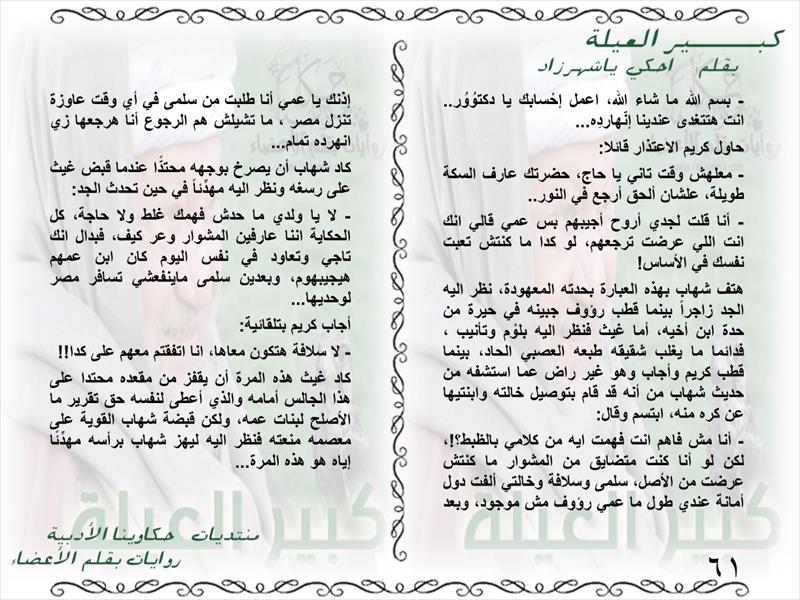 كبـــــــير العيلة
بقلم / احكي ياشهرزاد
- بسم الله ما شاء الله، اعمل إحسابك يا دكتوُوُر..
انت هتتغدى عندينا إنّهارده...
حاول كريم الاعتذار قائلا:
- معلهش وقت تاني يا حاج، حضرتك عارف السكة
طويلة، علشان ألحق أرجع في النور..
- أنا قلت لجدي أروح أجيبهم بس عمي قالي انك
انت اللي عرضت ترجعهم، لو كدا ما كنتش تعبت
نفسك في الأساس!
هتف شهاب بهذه العبارة بحدته المعهودة، نظر اليه
الجد زاجراً بينما قطب رؤوف جبينه في حيرة من
حدة ابن أخيه، أما غيث فنظر اليه بلوْم وتأنيب ،
فدائما ما يغلب شقيقه طبعه العصبي الحاد، بينما
قطب كريم وأجاب وهو غير راض عما استشفه من
حديث شهاب من أنه قد قام بتوصيل خالته وابنتيها
عن كره منه، ابتسم وقال:
- أنا مش فاهم انت فهمت ايه من كلامي بالظبط؟!،
لكن لو أنا كنت متضايق من المشوار ما كنتش
عرضت من الأصل، سلمى وسلافة وخالتي ألفت دول
أمانة عندي طول ما عمي رؤوف مش موجود، وبعد
إذنك يا عمي أنا طلبت من سلمى في أي وقت عاوزة
تنزل مصر ، ما تشيلش هم الرجوع أنا هرجعها زي
إنهرده تمام...
كاد شهاب أن يصرخ بوجهه محتدًّا عندما قبض غيث
على رسغه ونظر اليه مهدّناً في حين تحدث الجد:
- لا يا ولدي ما حدش فهمك غلط ولا حاجة، كل
الحكاية اننا عارفين المشوار وعر كيف، فبدال انك
تاجي وتعاود في نفس اليوم كان ابن عمهم
هيجيبهوم، وبعدين سلمى ماينفعشي تسافر مصر
لوحديها...
أجاب كريم بتلقائية:
- لا سلافة هتكون معاها، انا اتفقتم معهم على كدا!!
كاد غيث هذه المرة أن يقفز من مقعده محتدا على
هذا الجالس أمامه والذي أعطى لنفسه حق تقرير ما
الأصلح لبنات عمه، ولكن قبضة شهاب القوية على
معصمه منعته فنظر اليه ليهز شهاب برأسه مهدّئًا
إياه هو هذه المرة...
كبير العيلة
كبير العيلة
منتديات / حكاوينا الأدبية
روايات بقلم الأعضاء
٦١